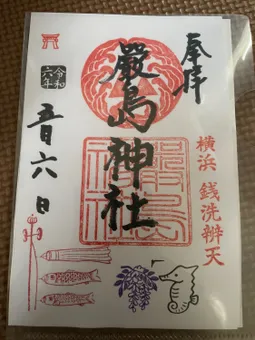 奉拝
横浜 銭洗辨天
嚴島神社
令和
六年
五月六日